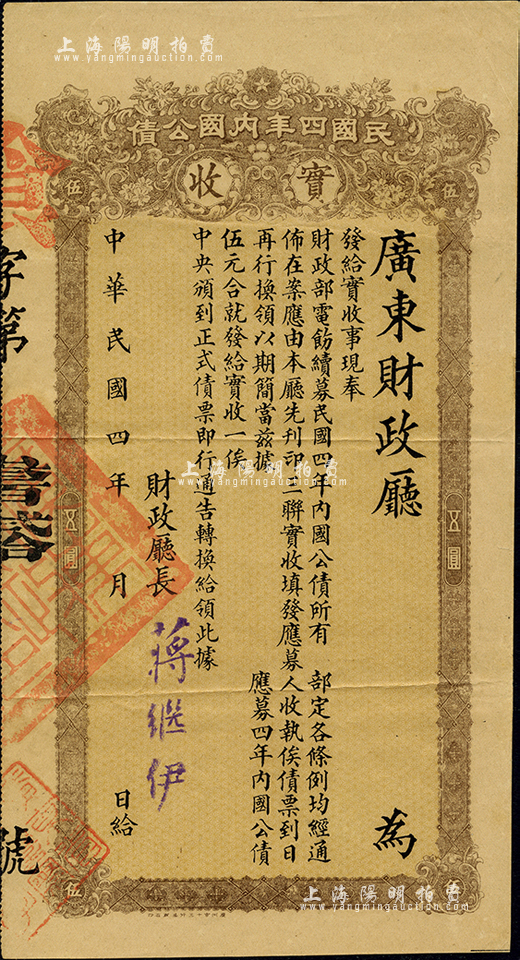 上海陽明拍賣
www.yangmingauction.com
民國四年內國公債
實收
伍
伍
廣東財政廳 為
發給實收事現奉
財政部電飭續募民國四年內國公債所有 部定各條例均經通
佈在案應由本廳先刊印二聯實收填發應募人收執俟債票到日
再行換領以期簡當茲據 應募四年內國公債
伍元合就發給實收一俟
中央頒到正式債票即行通告轉換給領此據
財政廳長 蔣繼伊
中華民國四年 月 日給
字第
號
五圓
五圓
伍
伍
上海陽明拍賣
www.yangmingauction.com
上海陽明拍賣
www.yangmingauction.com